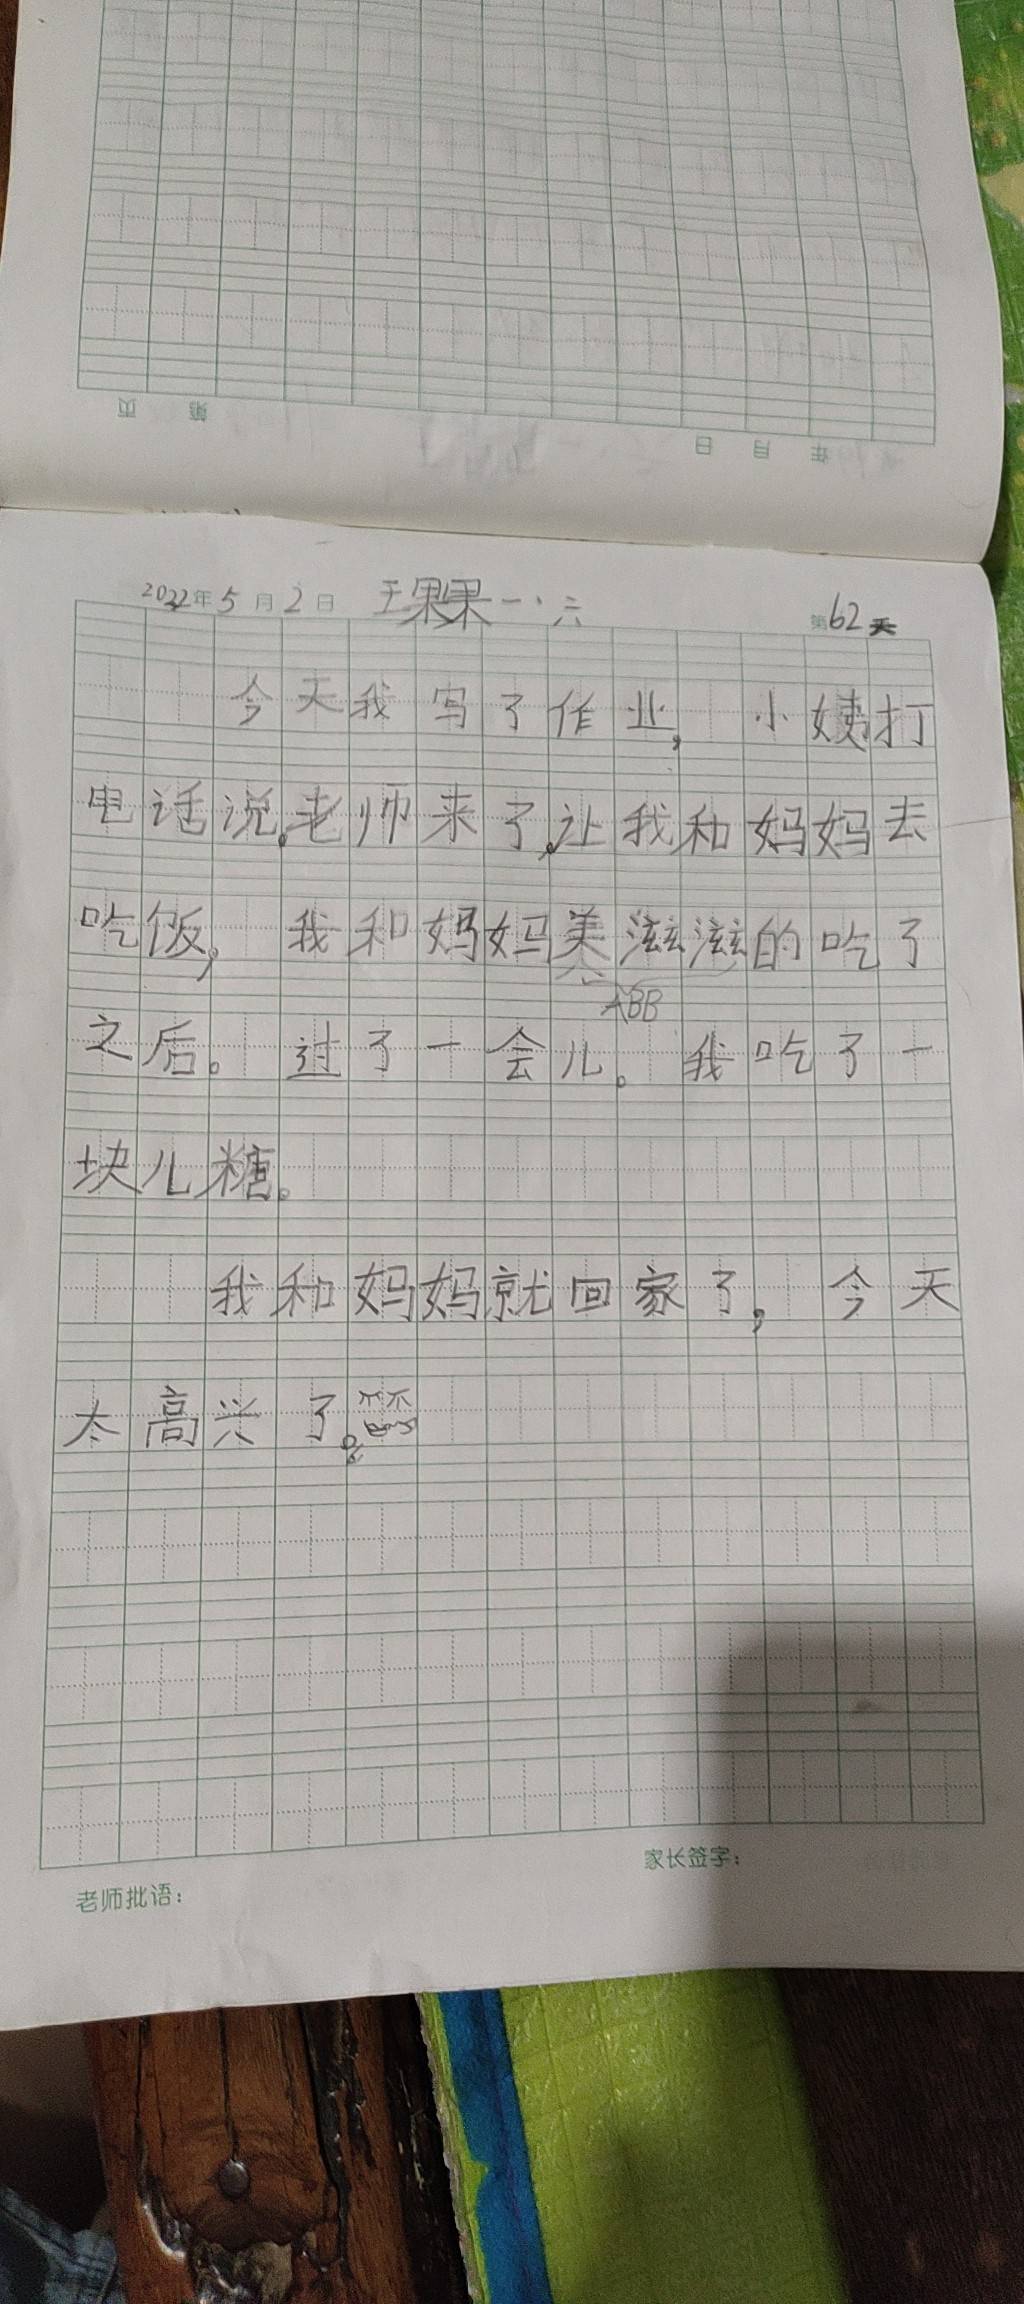 页 第 日 月 年
2022年5月2日 王果果 一·六 第62天
今天我写了作业, 小姨打
电话说。老帅来了,让我和妈妈去
吃饭, 我和妈妈美滋滋的吃了
ABB
之后。过了一会儿。我吃了一
块儿糖。
我和妈妈就回家了, 今天
太高兴了。
家长签字：
老师批语：